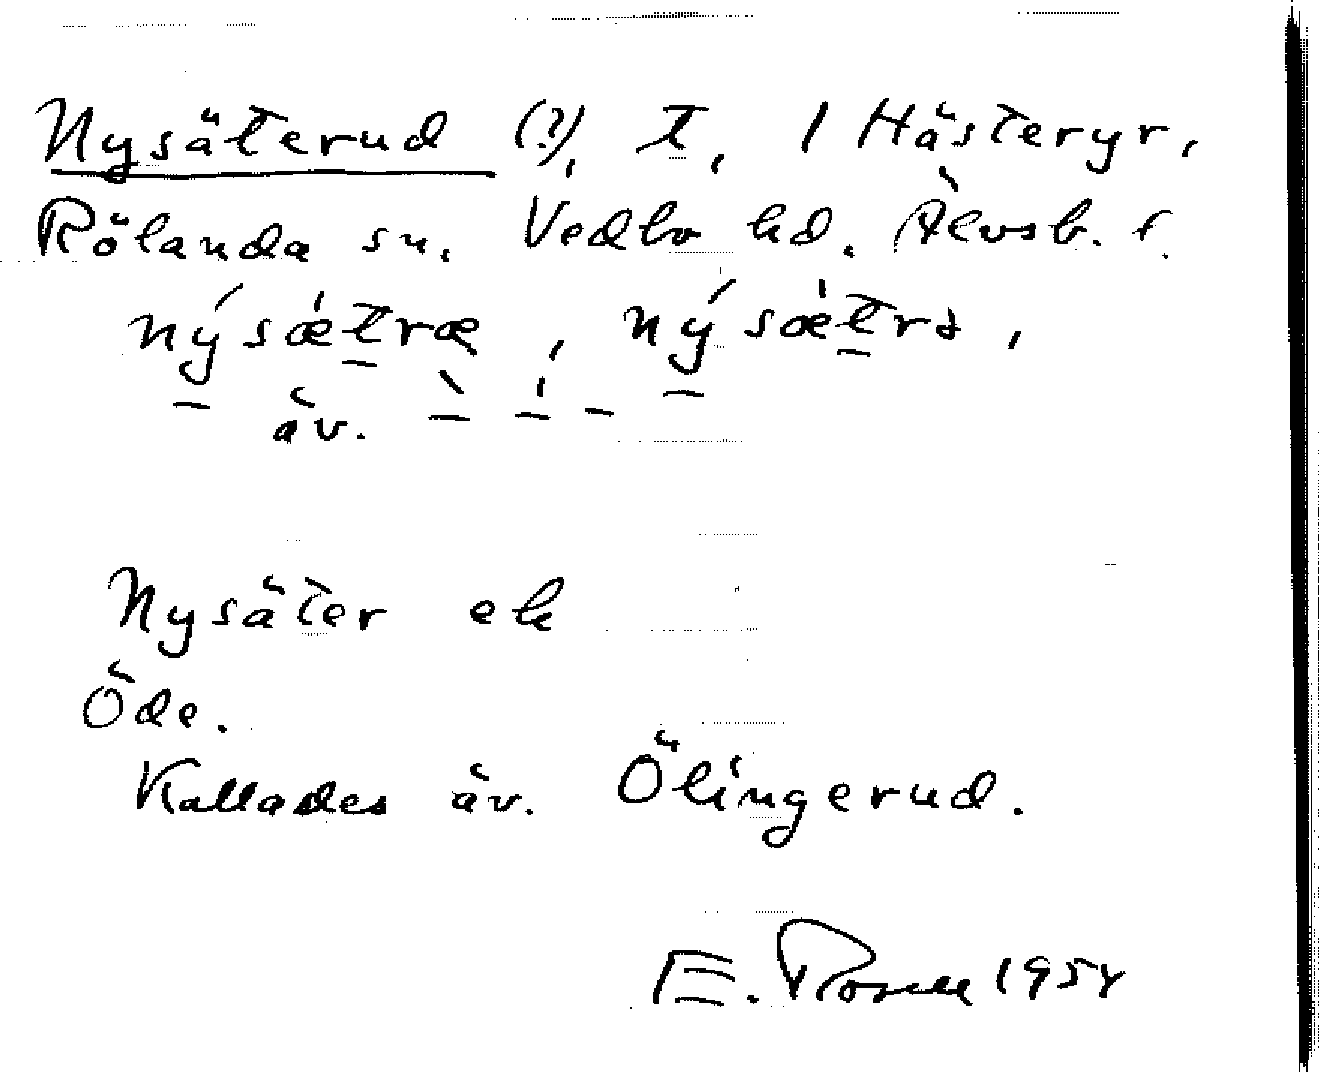 Nysäterud (?), t, 1 Hästeryr,
Rölanda sn. Vedbo hd. Älvsb. l.
nýsætræ, nýsætrə,
äv.
Nysäter ek
Öde.
Kallades äv. Ölingerud.
E. Rosell 1954